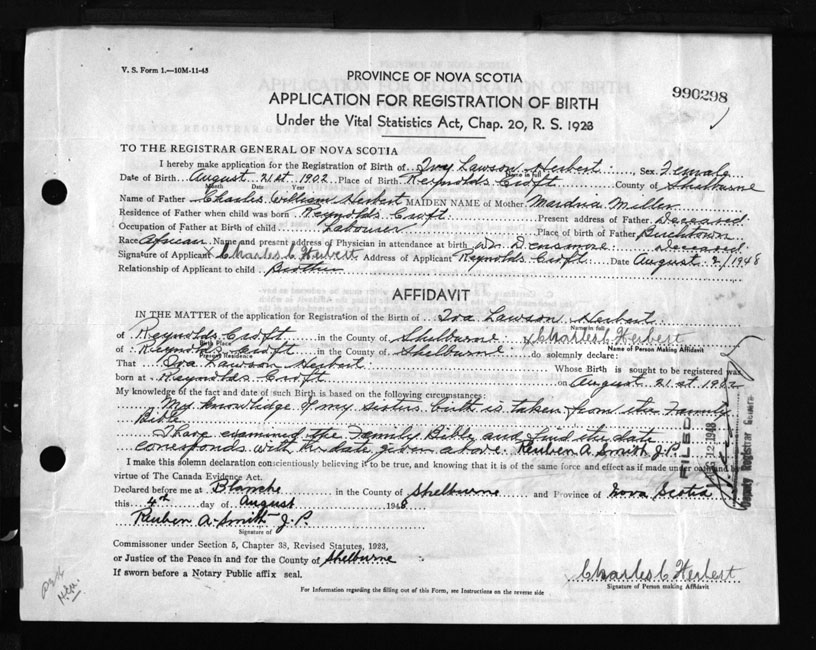 V. S. Form 1.—10M-11-43
PROVINCE OF NOVA SCOTIA
990298
APPLICATION FOR REGISTRATION OF BIRTH
Under the Vital Statistics Act, Chap. 20, R. S. 1923
TO THE REGISTRAR GENERAL OF NOVA SCOTIA
I hereby make application for the Registration of Birth of Iva Lawson Herbert Sex Female
Name in full
Date of Birth August 21st 1902 Place of Birth Reynolds Croft County of Shelburne
Month Date Year
Name of Father Charles William Herbert MAIDEN NAME of Mother Miller
Residence of Father when child was born Reynolds Croft Present address of Father Deceased
Occupation of Father at Birth of child Labourer Place of birth of Father Birchtown
Race African Name and present address of Physician in attendance at birth Dr. Densmore Deceased
Signature of Applicant Charles C Herbert Address of Applicant Reynolds Croft Date August 2/1948
Relationship of Applicant to child Brother
AFFIDAVIT
IN THE MATTER of the application for Registration of the Birth of Iva Lawson Herbert
Name in full
of Reynolds Croft in the County of Shelburne I Charles C Herbert
Birth Place Name of Person Making Affidavit
of Reynolds Croft in the County of Shelburne do solemnly declare:
Present Residence
That Iva Lawson Herbert Whose Birth is sought to be registered was
born at Reynolds Croft on August 21st 1902
My knowledge of the fact and date of such Birth is based on the following circumstances:
My knowlidge of my sisters birth is taken from the Family
Bible
I have examined the Family Bible and find the date
corresponds with the date given above. Reuben A. Smith J.P.
I make this solemn declaration conscientiously believing it to be true, and knowing that it is of the same force and effect as if made under oath and by
virtue of The Canada Evidence Act.
Declared before me at Blanche in the County of Shelburne and Province of Nova Scotia
this 4th day of August 1948
Reuben A. Smith J.P.
Signature of
Commissoner under Section 5, Chapter 38, Revised Statutes, 1923,
or Justice of the Peace in and for the County of Shelburne
If sworn before a Notary Public affix seal.
Charles C Herbert
Signature of Person making Affidavit
For Information regarding the filling out of this Form, see Instructions on the reverse side
FILED
1948
Deputy Registrar General